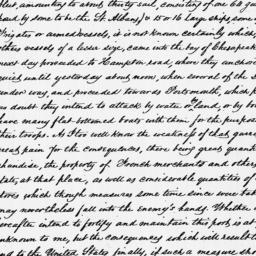 fleet amounting to about thirty sail, consisting of one 63 gu
said by some to be the St Albans, & 15 or 16 large ships some of
frigates or armed vessels, it is not known certainly which,
others vessels of a lesser size, came into the bay of Chesapeak
next day proceeded to Hampton road, where they anchor
quiet until yesterday about noon, when several of the s
under way, and proceeded towards Portsmouth, which p
no doubt they intend to attack by water or land, or by bo
have many flat bottomed boats with them for the purpose
their troops. As I too well know the weakness of that garr
great pain for the consequences, there being great quant
chandise, the property of French merchants and others
state, at that place, as well as considerable quantities of
stores which though measures some time since were tak
may nevertheless fall into the enemy's hands. Whether
hereafter intend to fortify and maintain this post, is at
unknown to me, but the consequences which will result t
and to the United States finally, if such a measure sho